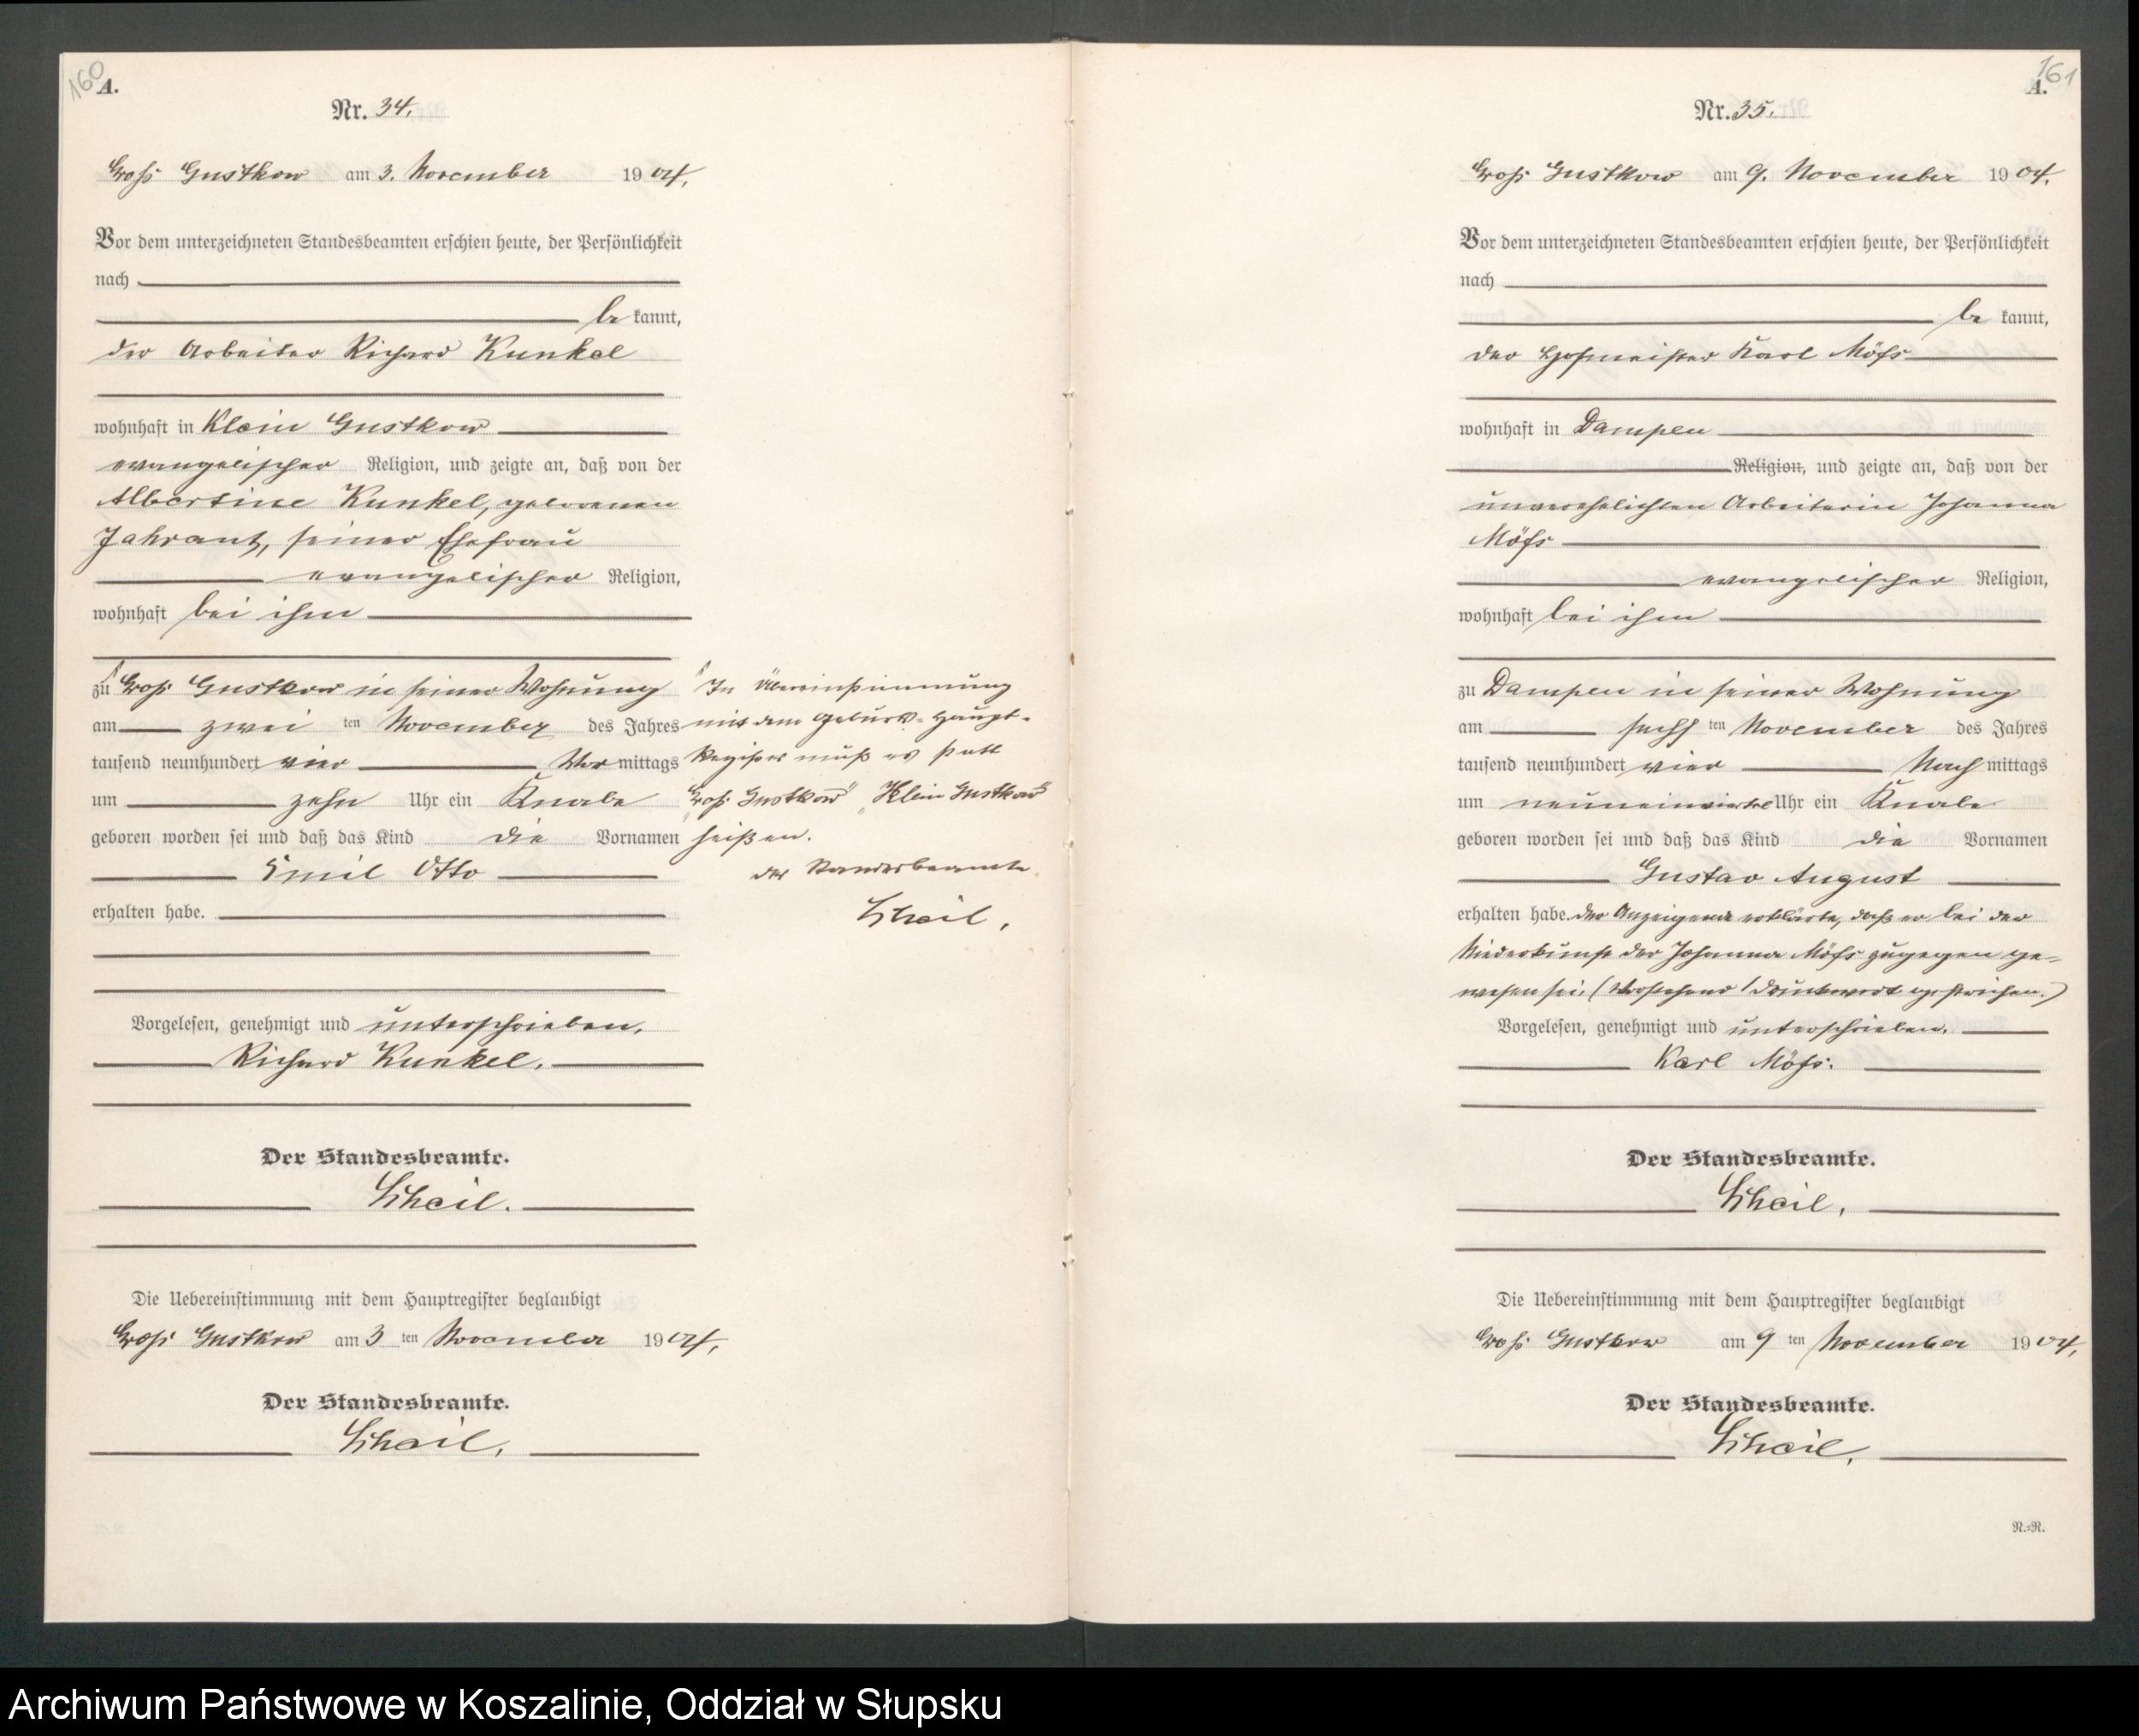 160
A.
Nr. 34.
Groß Gustkow am 3. November 1904.
Vor dem unterzeichneten Standesbeamten erschien heute, der Persönlichkeit
nach
be kannt,
der Arbeiter Richard Kunkel
wohnhaft in Klein Gustkow
evangelischer Religion, und zeigte an, daß von der
Albertine Kunkel, geborenen
Jahrant, seiner Ehefrau
evangelischer Religion,
wohnhaft bei ihm
zu Groß Gustkow in seiner Wohnung
am zwei ten November des Jahres
tausend neunhundert vier Vor mittags
um zehn Uhr ein Knabe
geboren worden sei und daß das Kind die Vornamen
Emil Otto
erhalten habe.
Vorgelesen, genehmigt und unterschrieben.
Richard Kunkel.
Der Standesbeamte.
Die Uebereinstimmung mit dem Hauptregister beglaubigt
Groß Gustkow am 3 ten November 1904.
Der Standesbeamte.
In Übereinstimmung
mit dem Geburts-Haupt-
Register muß es statt
„Groß Gustkow" „Klein Gustkow"
heißen.
der Standesbeamte
161
A.
Nr. 35.
Groß Gustkow am 9. November 1904.
Vor dem unterzeichneten Standesbeamten erschien heute, der Persönlichkeit
nach
be kannt,
der Hofmeister Karl Möhs
wohnhaft in Dampen
Religion, und zeigte an, daß von der
unverehelichten Arbeiterin Johanna
Möhs
evangelischer Religion,
wohnhaft bei ihm
zu Dampen in seiner Wohnung
am sechs ten November des Jahres
tausend neunhundert vier Nach mittags
um neuneinviertel Uhr ein Knabe
geboren worden sei und daß das Kind die Vornamen
Gustav August
erhalten habe. Der Anzeigende erklärte, daß er bei der
Niederkunft der Johanna Möhs zugegen ge-
wesen sei. (Vorstehend 1 Druckwort gestrichen.)
Vorgelesen, genehmigt und unterschrieben.
Karl Möhs.
Der Standesbeamte.
Die Uebereinstimmung mit dem Hauptregister beglaubigt
Groß Gustkow am 9 ten November 1904.
Der Standesbeamte.
N.=R.
Archiwum Państwowe w Koszalinie, Oddział w Słupsku